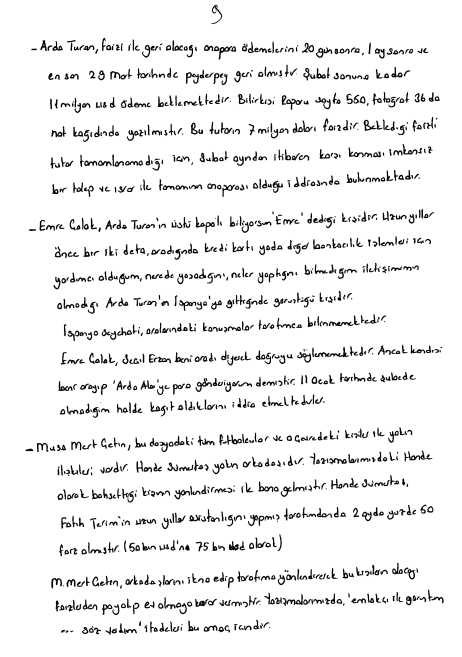 9
- Arda Turan, faizi ile geri alacağı anapara ödemelerini 20 gün sonra, 1 ay sonra ve
en son 29 Mart tarihinde peyderpey geri almıştır. Şubat sonuna kadar
11 milyon usd ödeme beklemektedir. Bilirkişi Raporu sayfa 550, fotoğraf 36 da
not kağıdında yazılmıştır. Bu tutarın 7 milyon doları faizdir. Beklediği faizli
tutar tamamlanamadığı için, Şubat ayından itibaren karşı konması imkansız
bir talep ve ısrar ile tamamının anaparası olduğu iddiasında bulunmaktadır.
- Emre Çolak, Arda Turan'ın üstü kapalı biliyorsun 'Emre' dediği kişidir. Uzun yıllar
önce bir iki defa, aradığında kredi kartı yada diğer bankacılık işlemleri için
yardımcı olduğum, nerede yaşadığını, neler yaptığını bilmediğim iletişimimin
olmadığı Arda Turan'ın İspanya'ya gittiğinde görüştüğü kişidir.
İspanya seyahati, aralarındaki konuşmalar tarafımca bilinmemektedir.
Emre Çolak, Seçil Erzan beni aradı diyerek doğruyu söylememektedir. Ancak kendisi
beni arayıp 'Arda Abi'ye para gönderiyorum demiştir. 11 Ocak tarihinde şubede
olmadığım halde kağıt aldıklarını iddia etmektedirler.
- Musa Mert Çetin, bu dosyadaki tüm futbolcular ve o çevredeki kişiler ile yakın
ilişkileri vardır. Hande Sümertaş yakın arkadaşıdır. Yazışmalarımızdaki Hande
olarak bahsettiği kişinin yönlendirmesi ile bana gelmiştir. Hande Sümertaş,
Fatih Terim'in uzun yıllar asistanlığını yapmış tarafımdanda 2 ayda yüzde 50
faiz almıştır. (50 bin usd'na 75 bin usd olarak)
M. Mert Çetin, arkadaşlarını ikna edip tarafıma yönlendirerek bu kişilerin alacağı
faizlerden pay alıp ev almaya karar vermiştir. Yazışmalarımızda, 'emlakçı ile görüştüm
... söz verdim' ifadeleri bu amaç içindir.